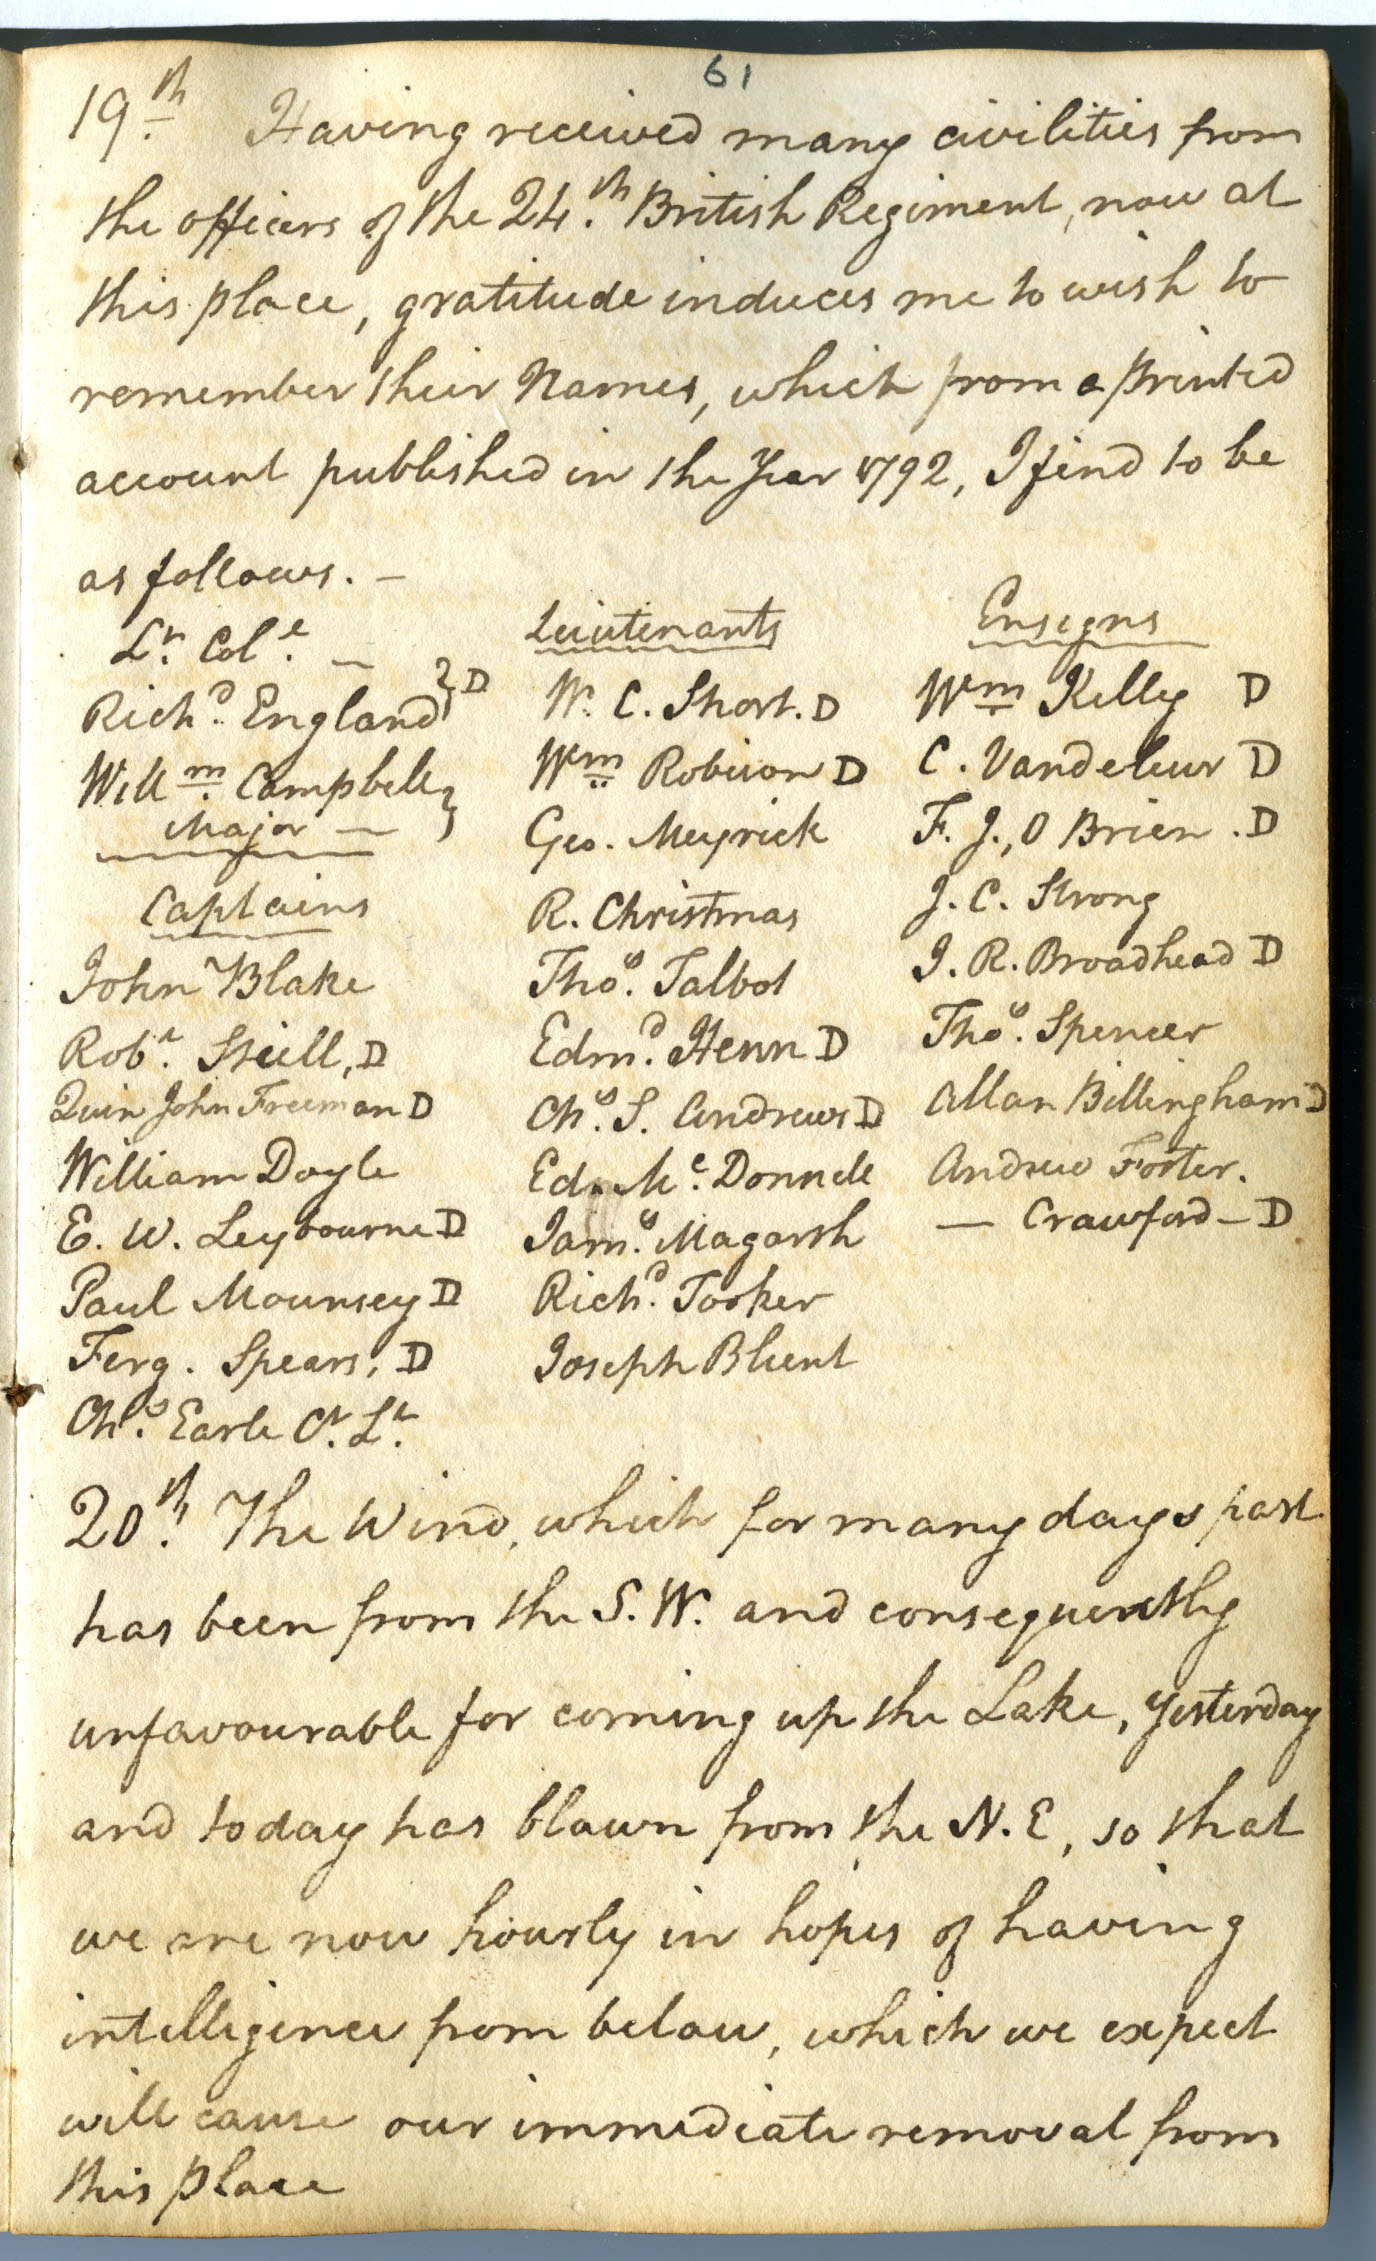 61
19th. Having received many civilities from
the officers of the 24.th British Regiment, now at
this place, gratitude induces me to wish to
remember their Names, which from a printed
account published in the Year 1792, I find to be
as follows. –
Lt. Cole. –
Richd. England } D
Willm. Campbell }
Major –
Captains
John Blake
Robt. Steill, D
Quin John Freeman D
William Doyle
E. W. Leybourne D
Paul Mounsey D
Ferg. Spears, D
Chs. Earle Ct. Lt.
Lieutenants
W. C. Short. D
Wm Robison D
Geo. Meyrick
R. Christmas
Thos. Talbot
Edmd. Henn D
Chs. S. Andrews D
Ed. Mc. Donnell
Jams. Magarth
Richd. Tooker
Joseph Blunt
Ensigns
Wm Kelly D
C. Vandeleur D
F. J., O Brien . D
J. C. Strong
J. R. Broadhead D
Thos. Spencer
Allan Billingham D
Andrew Foster.
— Crawford – D
20th. The Wind, which for many days past
has been from the S. W. and consequently
unfavourable for coming up the Lake, yesterday
and today has blown from the N. E, so that
we are now hourly in hopes of having
intelligence from below, which we expect
will cause our immediate removal from
this place